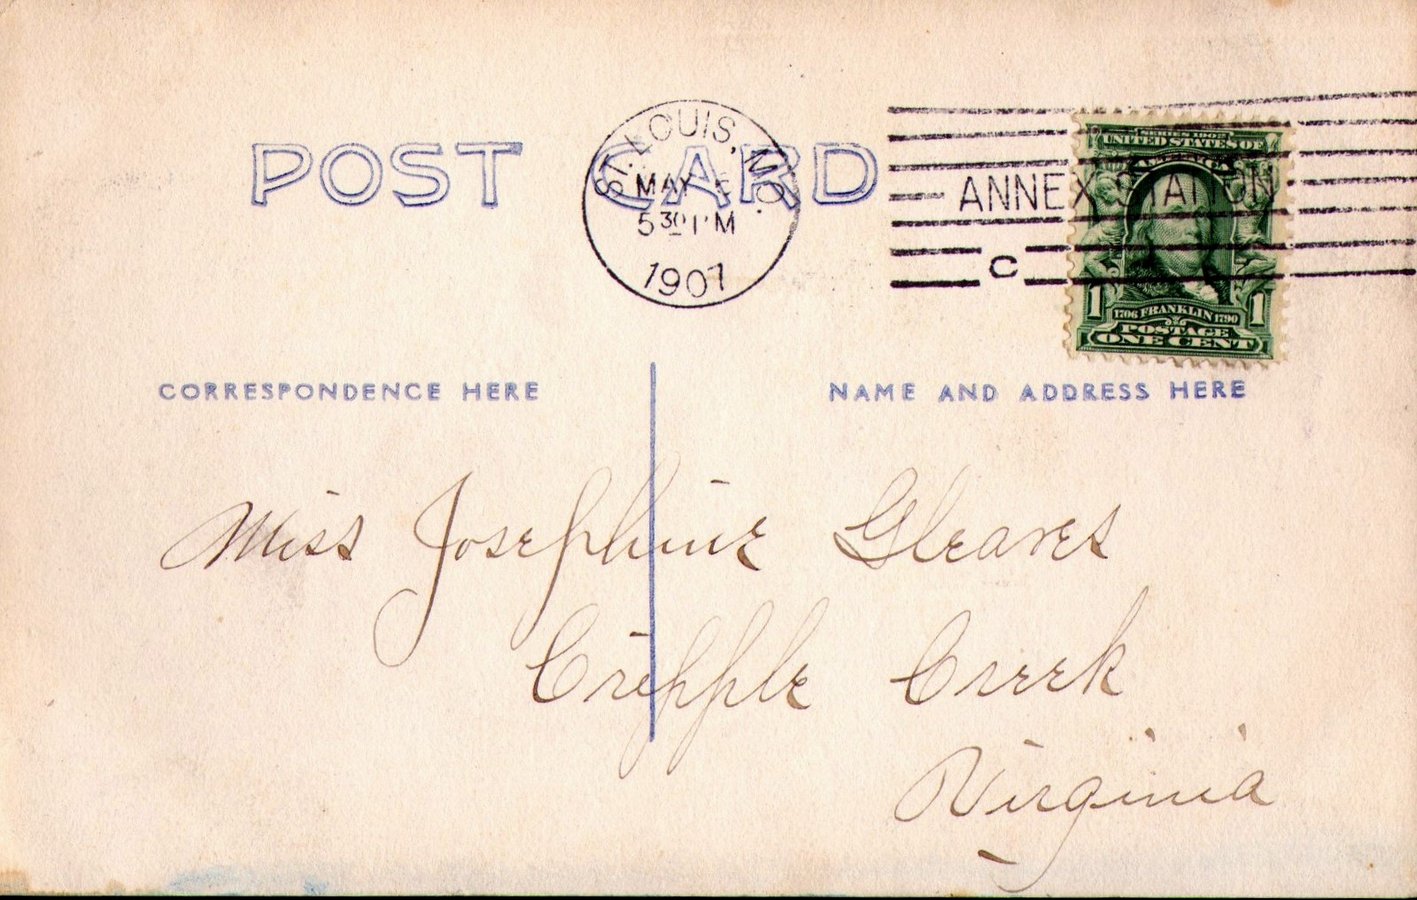 POST CARD
ST. LOUIS, MO.
MAY
5 30 PM
1907
ANNEX STATION
C
SERIES 1902
UNITED STATES OF
AMERICA
1 1
1706 FRANKLIN 1790
POSTAGE
ONE CENT
CORRESPONDENCE HERE
NAME AND ADDRESS HERE
Miss Josephine Gleaves
Cripple Creek
Virginia